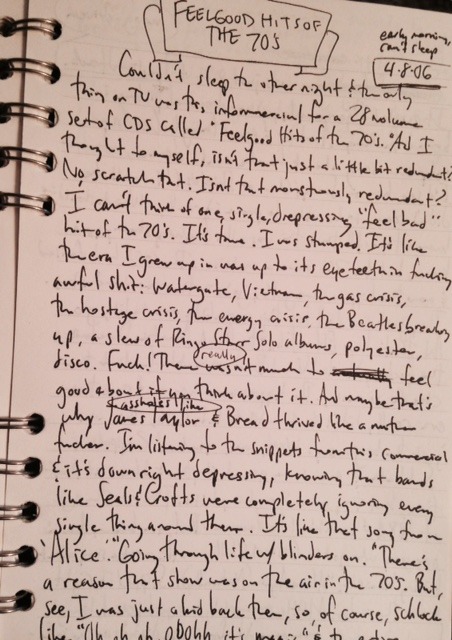 FEELGOOD HITS OF
THE 70'S
early morning,
can't sleep
4-8-06
Couldn't sleep the other night & the only
thing on TV was this infommercial for a 28 volume
set of CDS called "Feelgood Hits of the 70's." And I
thought to myself, isn't that just a little bit redundant?
No, scratch that. Isn't that monstrously redundant?
I can't think of one, single, depressing, "feel bad"
hit of the 70's. It's true. I was stumped. It's like
the era I grew up in was up to its eye teeth in fucking
awful shit: Watergate, Vietnam, the gas crisis,
the hostage crisis, the energy crisis, the Beatles breaking
up, a slew of Ringo Starr solo albums, polyester,
disco. Fuck! There really wasn't much to feel
good about if you think about it. And maybe that's
why assholes like James Taylor & Bread thrived like a mother
fucker. I'm listening to the snippets from this commercial
& it's downright depressing, knowing that bands
like Seals & Crofts were completely ignoring every
single thing around them. It's like that song from
'Alice'. "Going through life w/ blinders on." There's
a reason that show was on the air in the 70's. But,
see, I was just a kid back then, so of course, schlock
like "Oh oh oh Ohohh it's magic"